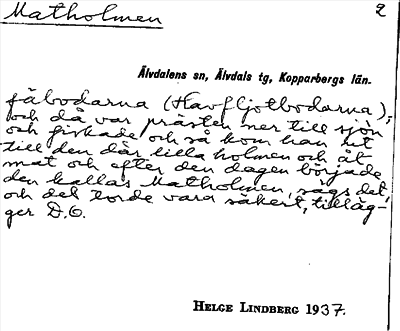 Matholmen
2
Älvdalens sn, Älvdals tg, Kopparbergs län.
fäbodarna (Havfljotbodarna),
och då var prästen ner till sjön
och fiskade, och så kom han ut
till den där lilla holmen och åt
mat och efter den dagen började
den kallas Matholmen, sägs det,
och det torde vara säkert, tilläg-
ger D.O.
HELGE LINDBERG 1937.